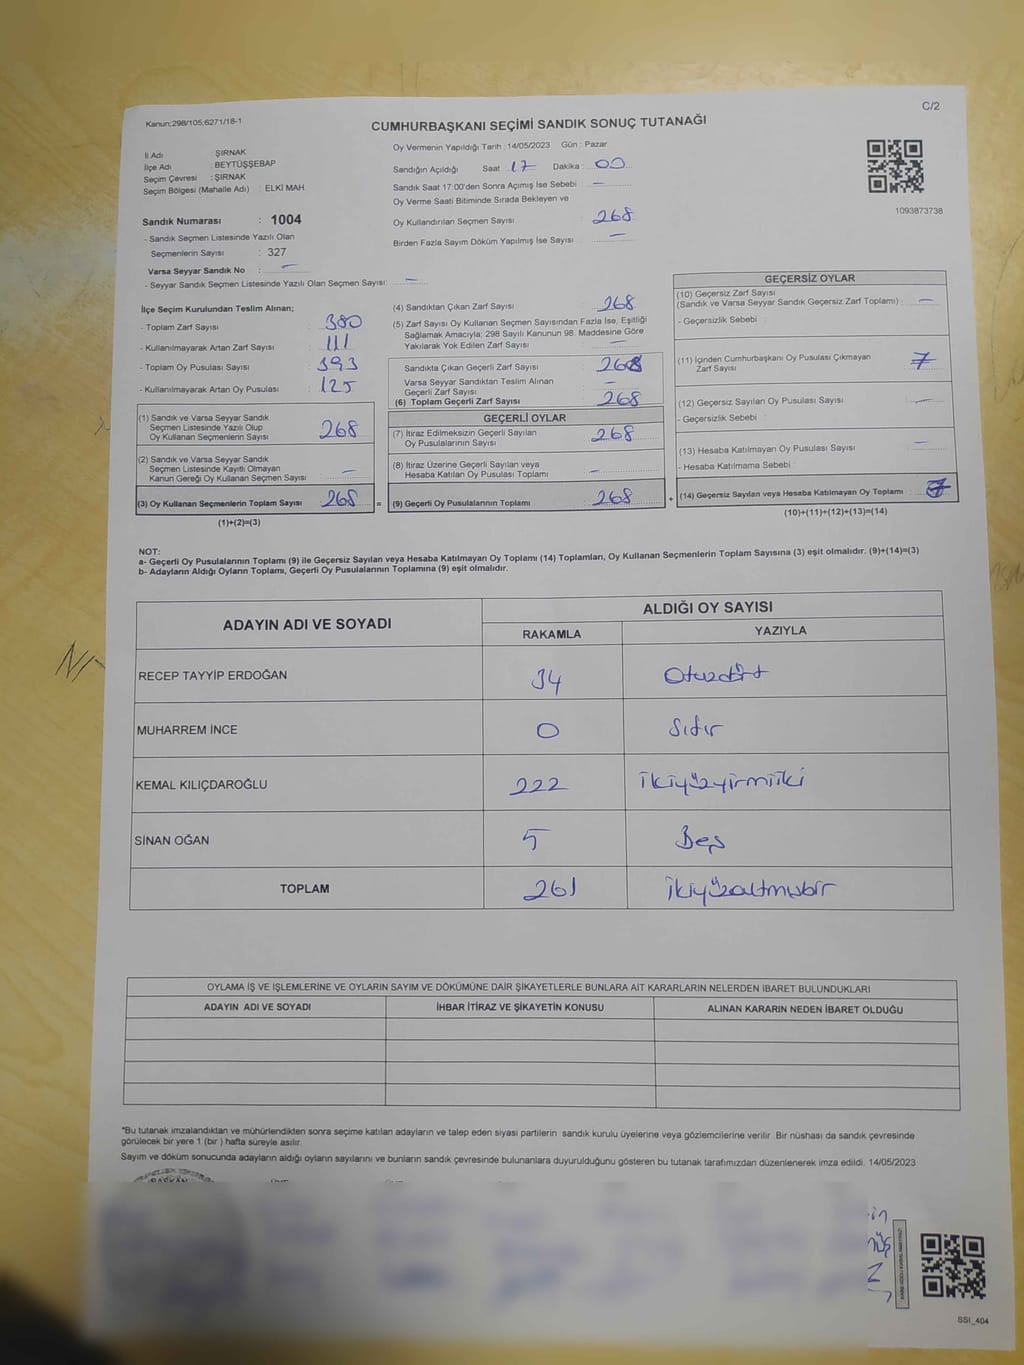 C/2
Kanun;298/105;6271/18-1
CUMHURBAŞKANI SEÇİMİ SANDIK SONUÇ TUTANAĞI
İl Adı : ŞIRNAK
İlçe Adı : BEYTÜŞŞEBAP
Seçim Çevresi : ŞIRNAK
Seçim Bölgesi (Mahalle Adı) : ELKİ MAH.
Sandık Numarası : 1004
- Sandık Seçmen Listesinde Yazılı Olan
Seçmenlerin Sayısı : 327
Varsa Seyyar Sandık No : —
- Seyyar Sandık Seçmen Listesinde Yazılı Olan Seçmen Sayısı: —
Oy Vermenin Yapıldığı Tarih : 14/05/2023 Gün : Pazar
Sandığın Açıldığı Saat 17 Dakika : 00
Sandık Saat 17:00'den Sonra Açımış İse Sebebi : —
Oy Verme Saati Bitiminde Sırada Bekleyen ve
Oy Kullandırılan Seçmen Sayısı : 268
Birden Fazla Sayım Döküm Yapılmış İse Sayısı : —
1093873738
İlçe Seçim Kurulundan Teslim Alınan;
- Toplam Zarf Sayısı : 380
- Kullanılmayarak Artan Zarf Sayısı : 111
- Toplam Oy Pusulası Sayısı : 393
- Kullanılmayarak Artan Oy Pusulası : 125
(1) Sandık ve Varsa Seyyar Sandık
Seçmen Listesinde Yazılı Olup
Oy Kullanan Seçmenlerin Sayısı 268
(2) Sandık ve Varsa Seyyar Sandık
Seçmen Listesinde Kayıtlı Olmayan
Kanun Gereği Oy Kullanan Seçmen Sayısı —
(3) Oy Kullanan Seçmenlerin Toplam Sayısı 268 =
(1)+(2)=(3)
(4) Sandıktan Çıkan Zarf Sayısı : 268
(5) Zarf Sayısı Oy Kullanan Seçmen Sayısından Fazla İse, Eşitliği
Sağlamak Amacıyla; 298 Sayılı Kanunun 98. Maddesine Göre
Yakılarak Yok Edilen Zarf Sayısı : —
Sandıkta Çıkan Geçerli Zarf Sayısı : 268
Varsa Seyyar Sandıktan Teslim Alınan
Geçerli Zarf Sayısı : —
(6) Toplam Geçerli Zarf Sayısı : 268
GEÇERLİ OYLAR
(7) İtiraz Edilmeksizin Geçerli Sayılan
Oy Pusulalarının Sayısı : 268
(8) İtiraz Üzerine Geçerli Sayılan veya
Hesaba Katılan Oy Pusulası Toplamı : —
(9) Geçerli Oy Pusulalarının Toplamı : 268 +
GEÇERSİZ OYLAR
(10) Geçersiz Zarf Sayısı
(Sandık ve Varsa Seyyar Sandık Geçersiz Zarf Toplamı) : —
- Geçersizlik Sebebi :
(11) İçinden Cumhurbaşkanı Oy Pusulası Çıkmayan
Zarf Sayısı : 7
(12) Geçersiz Sayılan Oy Pusulası Sayısı : —
- Geçersizlik Sebebi :
(13) Hesaba Katılmayan Oy Pusulası Sayısı : —
- Hesaba Katılmama Sebebi :
(14) Geçersiz Sayılan veya Hesaba Katılmayan Oy Toplamı : 7
(10)+(11)+(12)+(13)=(14)
NOT:
a- Geçerli Oy Pusulalarının Toplamı (9) ile Geçersiz Sayılan veya Hesaba Katılmayan Oy Toplamı (14) Toplamları, Oy Kullanan Seçmenlerin Toplam Sayısına (3) eşit olmalıdır. (9)+(14)=(3)
b- Adayların Aldığı Oyların Toplamı, Geçerli Oy Pusulalarının Toplamına (9) eşit olmalıdır.
ADAYIN ADI VE SOYADI ALDIĞI OY SAYISI
RAKAMLA YAZIYLA
RECEP TAYYİP ERDOĞAN 34 Otuzdört
MUHARREM İNCE 0 Sıfır
KEMAL KILIÇDAROĞLU 222 İkiyüzyirmiiki
SİNAN OĞAN 5 Beş
TOPLAM 261 İkiyüzaltmışbir
OYLAMA İŞ VE İŞLEMLERİNE VE OYLARIN SAYIM VE DÖKÜMÜNE DAİR ŞİKAYETLERLE BUNLARA AİT KARARLARIN NELERDEN İBARET BULUNDUKLARI
ADAYIN ADI VE SOYADI İHBAR İTİRAZ VE ŞİKAYETİN KONUSU ALINAN KARARIN NEDEN İBARET OLDUĞU
*Bu tutanak imzalandıktan ve mühürlendikten sonra seçime katılan adayların ve talep eden siyasi partilerin sandık kurulu üyelerine veya gözlemcilerine verilir. Bir nüshası da sandık çevresinde
görülecek bir yere 1 (bir ) hafta süreyle asılır.
Sayım ve döküm sonucunda adayların aldığı oyların sayılarını ve bunların sandık çevresinde bulunanlara duyurulduğunu gösteren bu tutanak tarafımızdan düzenlenerek imza edildi. 14/05/2023
BAŞKAN
SSI_404